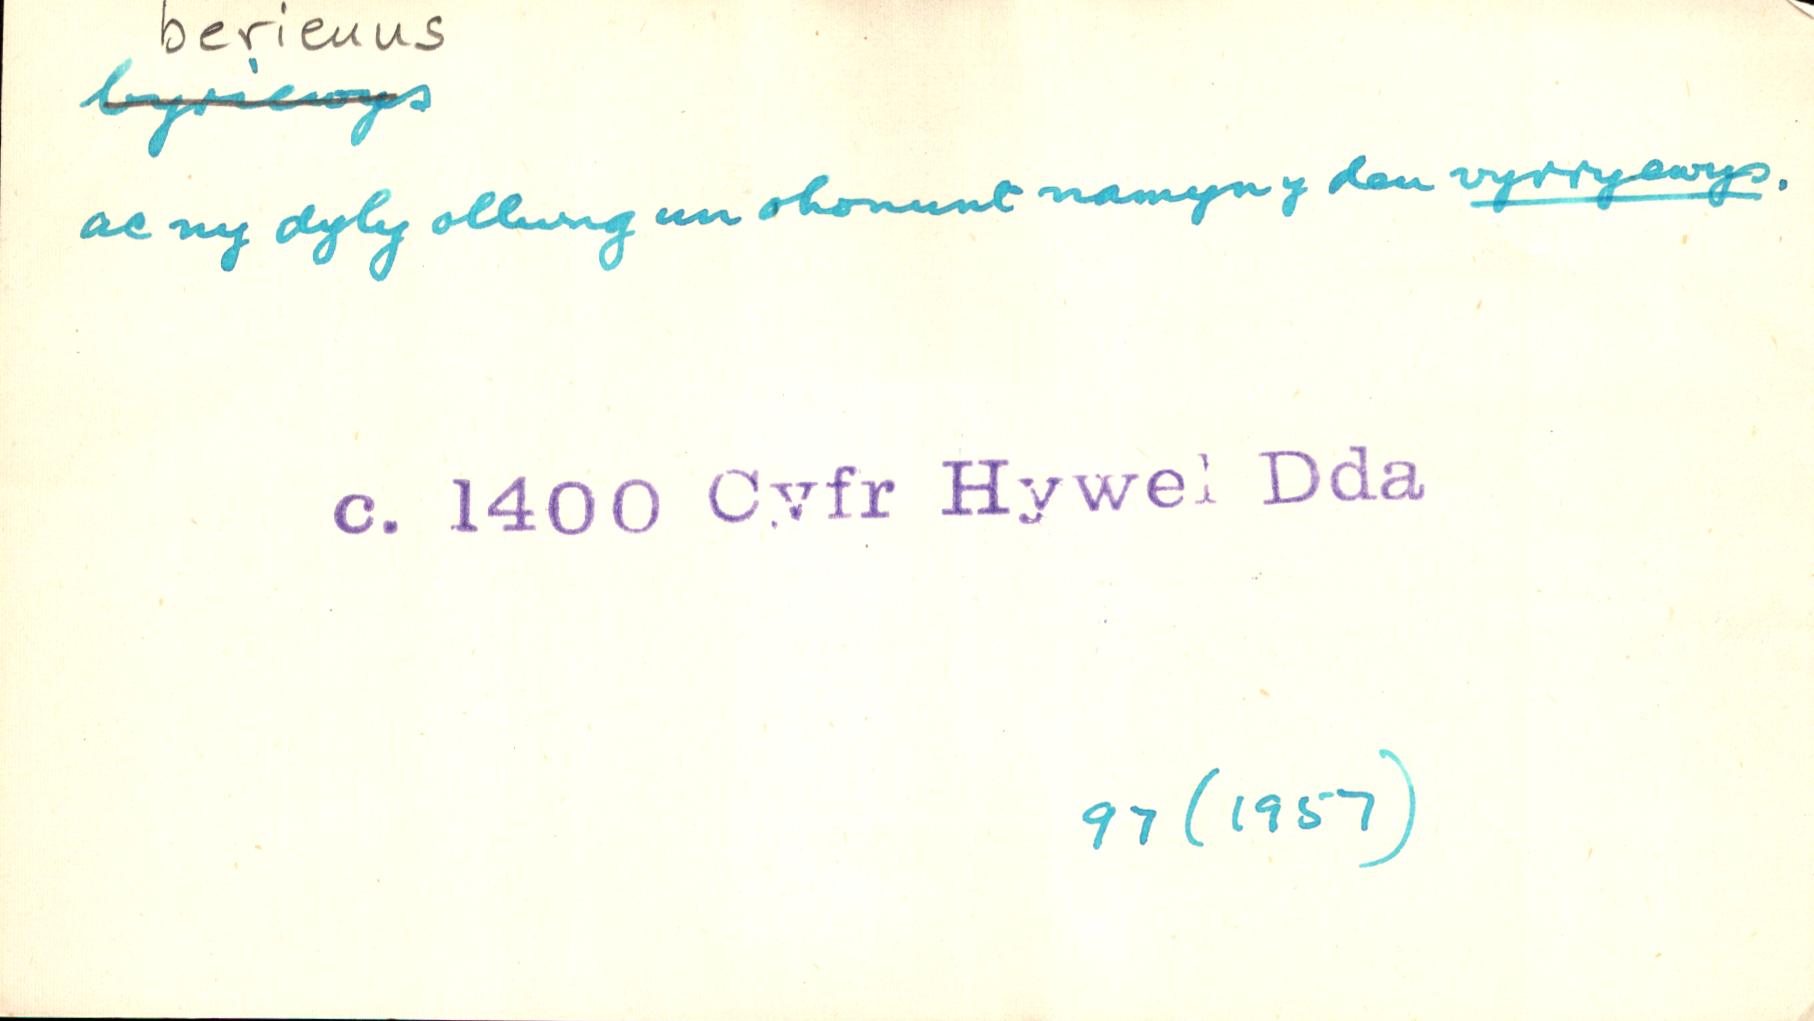 berieuus
byriewys
ac ny dyly ollwng un ohonunt namyn y deu vyrryewys.
c. 1400 Cyfr Hywel Dda
97 (1957)